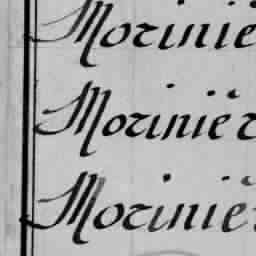 Morinië
Morinièr
Morinië